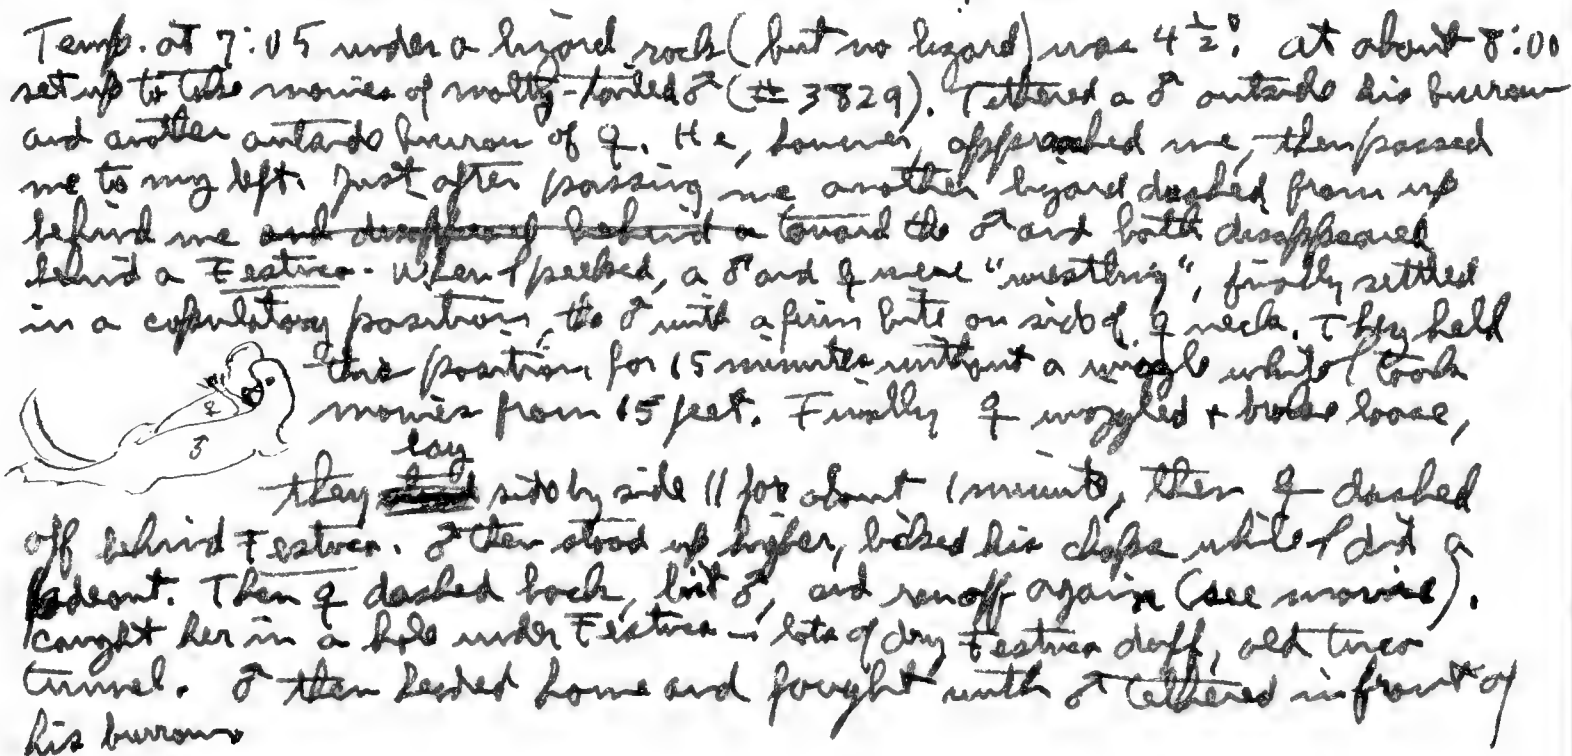 Temp. at 7:05 under a lizard rock (but no lizard) was 4½°. At about 8:00
set up to take movies of molty-tailed ♂ (# 3829). Tethered a ♂ outside his burrow
and another outside burrow of ♀. He, however, approached me, then passed
me to my left. Just after passing me another lizard dashed from up
behind me and disappeared behind a toward the ♂ and both disappeared
behind a Festuca. When I peeked, a ♂ and ♀ were "wrestling", finally settled
in a copulatory position, the ♂ with a firm bite on side of ♀ neck. They held
this position for 15 minutes without a wiggle while I took
movies from 15 feet. Finally ♀ wiggled + broke loose,
♀
♂
lay
they side by side || for about 1 minute, then ♀ dashed
off behind Festuca. ♂ then stood up higher, licked his chops while I did a
fadeout. Then ♀ dashed back, bit ♂, and ran off again (see movie).
Caught her in a hole under Festuca — lots of dry Festuca duff, old tuco
tunnel. ♂ then headed home and fought with ♂ tethered in front of
his burrow